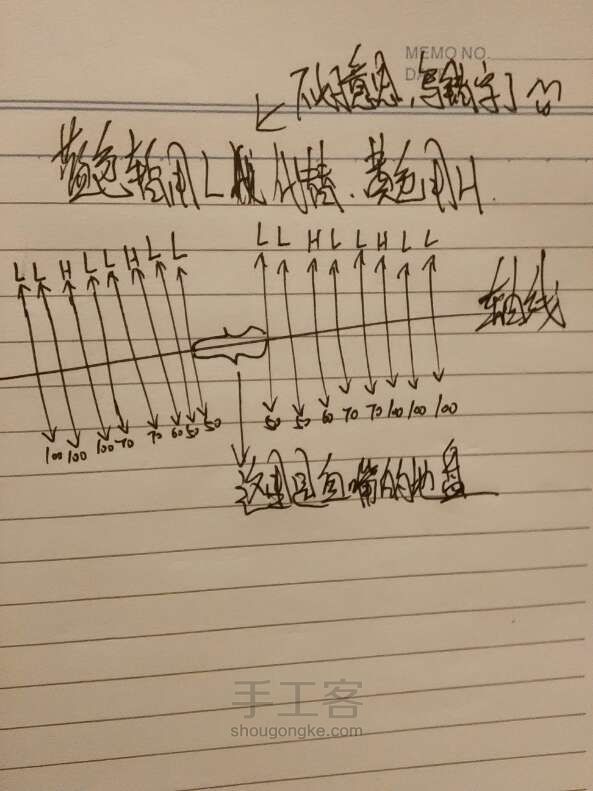 MEMO NO.
不好意思,写错字了
蓝色轴用L代替.黄色用H.
L L H L L H L L L L H L L H L L
轴线
100 100 100 70 70 60 50 50 50 50 60 70 70 100 100 100
这里是鱼嘴的地盘
手工客
shougongke.com